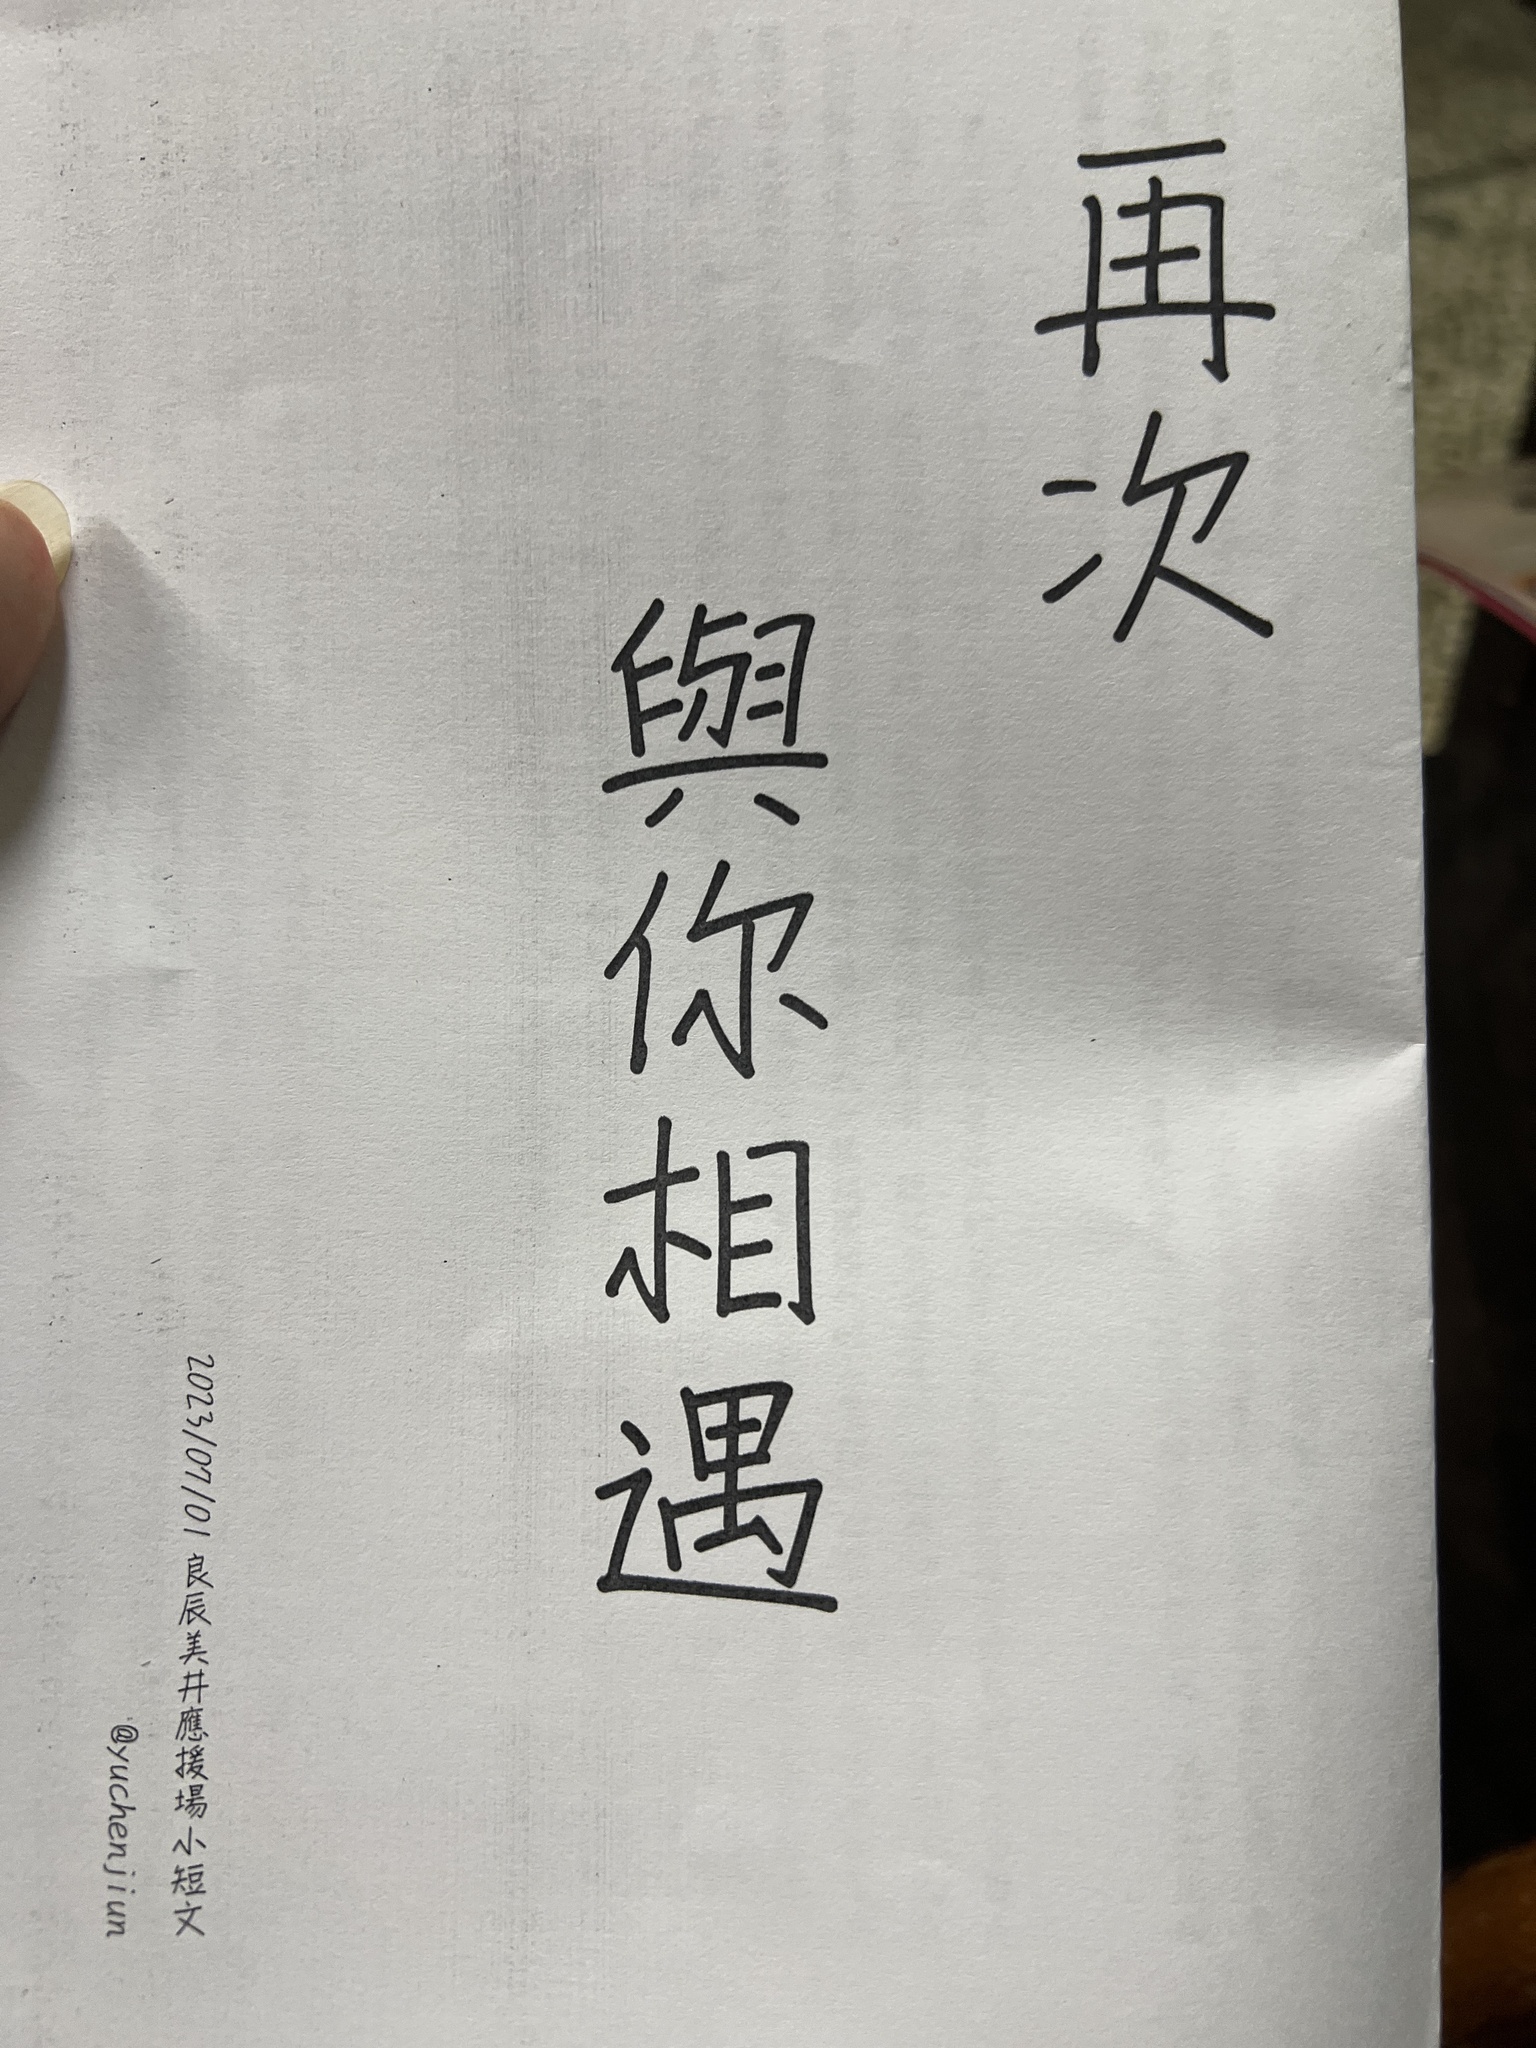 再次
與你相遇
2023/07/01 良辰美井應援場小短文
@yuchenjiun